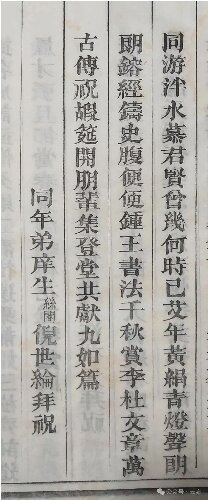 同游泮水慕君賢曾幾何時已艾年黃絹青燈聲朗
朗鎔經鑄史腹便便鍾王書法千秋賞李杜文章萬
古傳祝嘏筵開朋輩集登堂共獻九如篇
同年弟庠生絲閣倪世綸拜祝
公众号